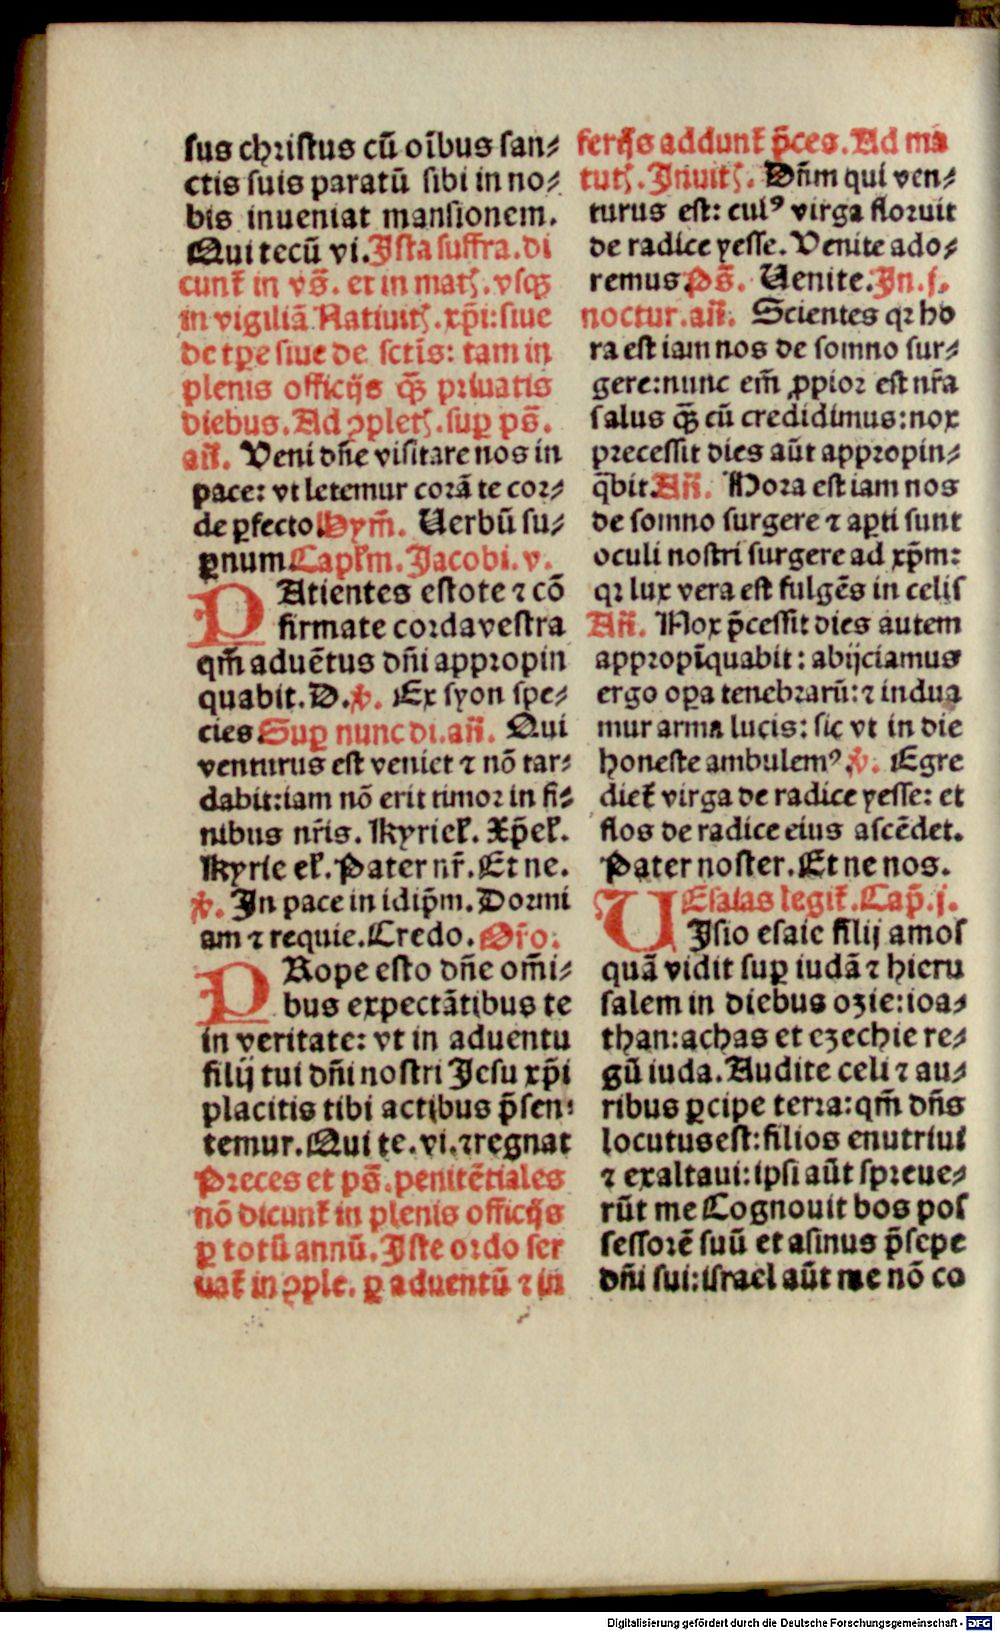 sus christus cū oībus san⸗
ctis suis paratū sibi in no⸗
bis inueniat mansionem.
Qui tecū vi. Ista suffra. di
cunt᷑ in vs̄. et in matꝭ. vsqꝫ
in vigiliā Natiuitꝭ. xp̄i: siue
de tp̄e siue de sctīs: tam in
plenis officijs qꝫ̄ priuatis
diebus. Ad ꝯpletꝭ. suꝑ ps̄.
an̄. Veni dn̄e visitare nos in
pace: vt letemur corā te cor⸗
de ꝑfecto. Hym̄. Uerbū su⸗
ꝑnum Capl'm. Jacobi. v.
PAtientes estote ⁊ cō
firmate corda vestra
qm̄ aduētus dn̄i appropin
quabit. D. ℣. Ex syon spe⸗
cies. Suꝑ nunc di. an̄. Qui
venturus est veniet ⁊ nō tar⸗
dabit: iam nō erit timor in fi⸗
nibus nr̄is. Kyriel'. Xp̄el'.
Kyrie el'. Pater nr̄. Et ne.
℣. In pace in idip̄m. Dormi
am ⁊ requie. Credo. Or̄o.
PRope esto dn̄e om̄i⸗
bus expectātibus te
in veritate: vt in aduentu
filij tui dn̄i nostri Jesu xp̄i
placitis tibi actibus p̄sen⸗
temur. Qui te. vi. ⁊ regnat
Preces et ps̄. penitētiales
nō dicunt᷑ in plenis officijs
ꝑ totū annū. Iste ordo ser
uat᷑ in ꝯple. ꝑ aduentū ⁊ in
ferijs addunt᷑ p̄ces. Ad ma
tutꝭ. Inuitꝭ. Dn̄m qui ven⸗
turus est: cuiꝰ virga floruit
de radice yesse. Venite ado⸗
remus Ps̄. Uenite. In. j.
noctur. an̄. Scientes qꝛ ho
ra est iam nos de somno sur⸗
gere: nunc em̄ ꝓpior est nr̄a
salus qꝫ̄ cū credidimus: nox
precessit dies aūt appropin⸗
q̄bit. An̄. Hora est iam nos
de somno surgere ⁊ aꝑti sunt
oculi nostri surgere ad xp̄m:
qꝛ lux vera est fulgēs in celis
An̄. Nox p̄cessit dies autem
appropīquabit: abijciamus
ergo oꝑa tenebrarū: ⁊ indua
mur arma lucis: sic vt in die
honeste ambulemꝰ ℣. Egre
diet᷑ virga de radice yesse: et
flos de radice eius ascēdet.
Pater noster. Et ne nos.
Esaias legit᷑. Cap̄. j.
UIsio esaie filij amos
quā vidit suꝑ iudā ⁊ hieru
salem in diebus ozie: ioa⸗
than: achas et ezechie re⸗
gū iuda. Audite celi ⁊ au⸗
ribus ꝑcipe terra: qm̄ dn̄s
locutus est: filios enutriui
⁊ exaltaui: ipsi aūt spreue⸗
rūt me Cognouit bos pos
sessorē suū et asinus p̄sepe
dn̄i sui: israel aūt me nō co
Digitalisierung gefördert durch die Deutsche Forschungsgemeinschaft - DFG